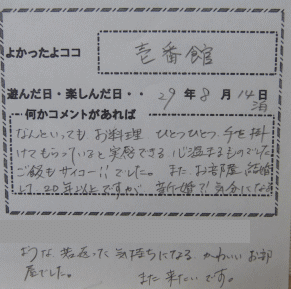 よかったよココ 壱番館
遊んだ日・楽しんだ日・・ 29年8月14日
泊
何かコメントがあれば
なんといっても お料理 ひとつひとつ、手を掛
けてもらっていると実感できる 心温まるものでした
ご飯もサイコー!!でした。また、お部屋、結婚
して、20年以上ですが、新婚で!気分になる
ような 若返った 気持ちになる かわいい お部
屋でした。 また 来たいです。